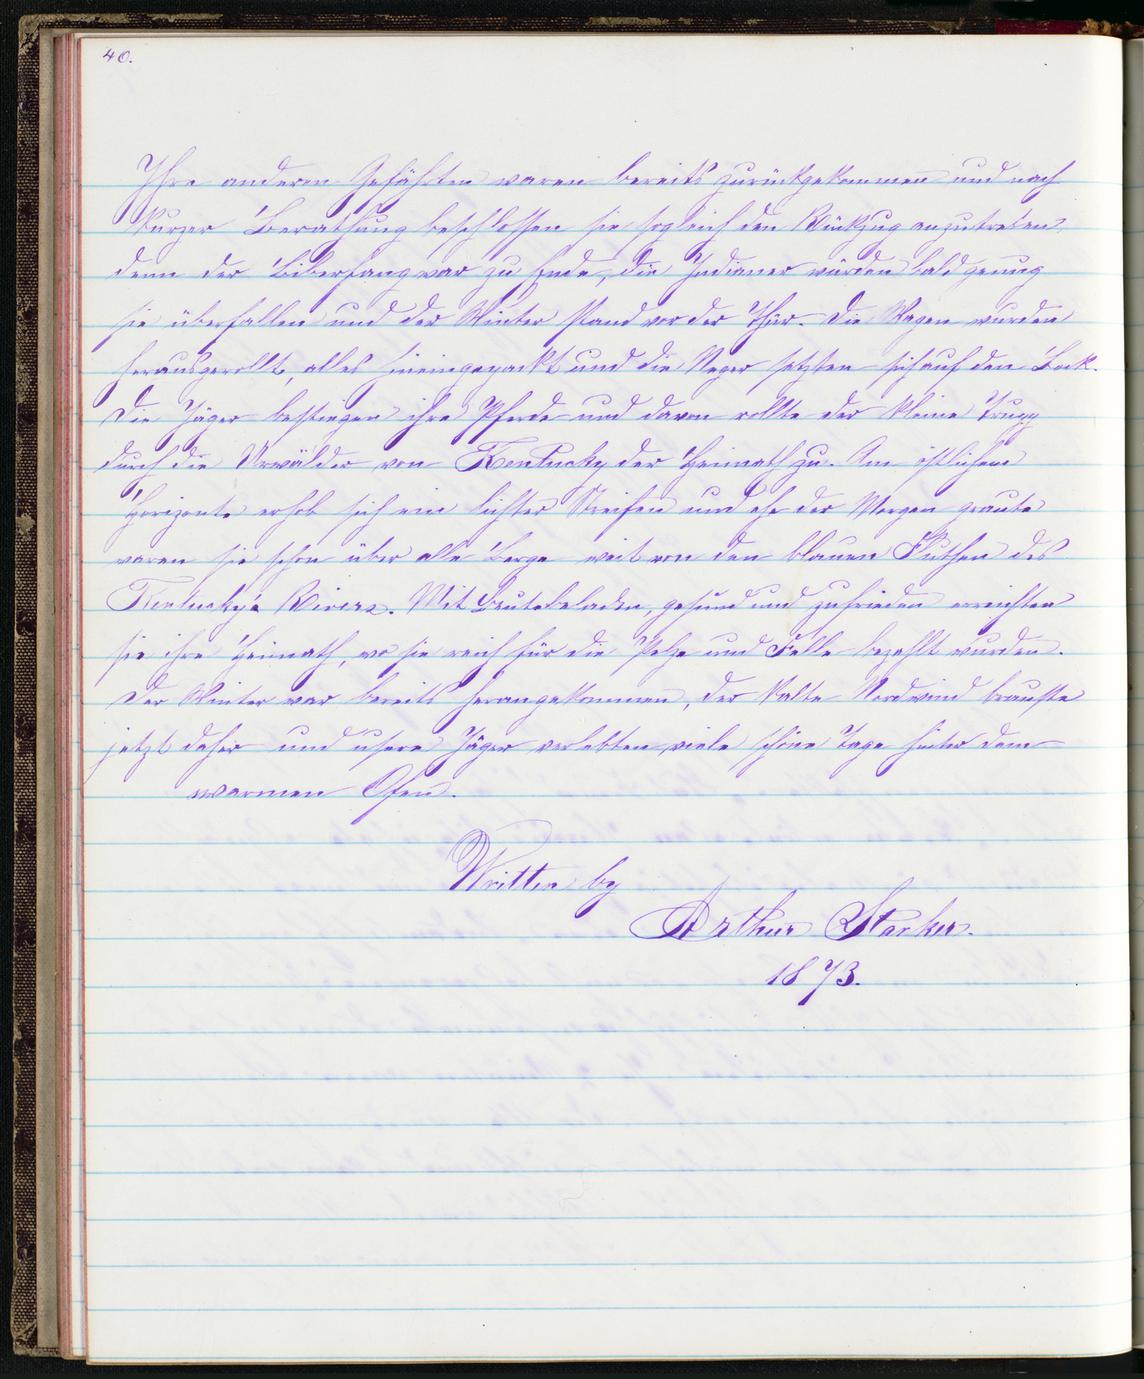 40.
Ihre anderen Gefährten waren bereits zurückgekommen und nach
kurzer Berathung beschlossen sie sogleich den Rückzug anzutreten,
denn der Biberfang war zu Ende, die Indianer würden bald genug
sie überfallen und der Winter stand vor der Thür. Die Wagen wurden
herausgerollt, alles hineingepackt und die Neger setzten sich auf den Bock.
Die Jäger bestiegen ihre Pferde und davon rollte der kleine Trupp
durch die Urwälder von Kentucky der Heimath zu. Am östlichen
Horizonte erhob sich ein lichter Streifen und ehe der Morgen graute
waren sie schon über alle Berge weit von den blauen Fluthen des
Kentucky's Rivers. Mit Beute beladen, gesund und zufrieden erreichten
sie ihre Heimath, wo sie reich für die Pelze und Felle bezahlt wurden.
Der Winter war bereits herangekommen, der kalte Nordwind brauste
jetzt daher und unsere Jäger verlebten viele schöne Tage hinter dem
warmen Ofen.
Written by
Arthur Starker.
1873.